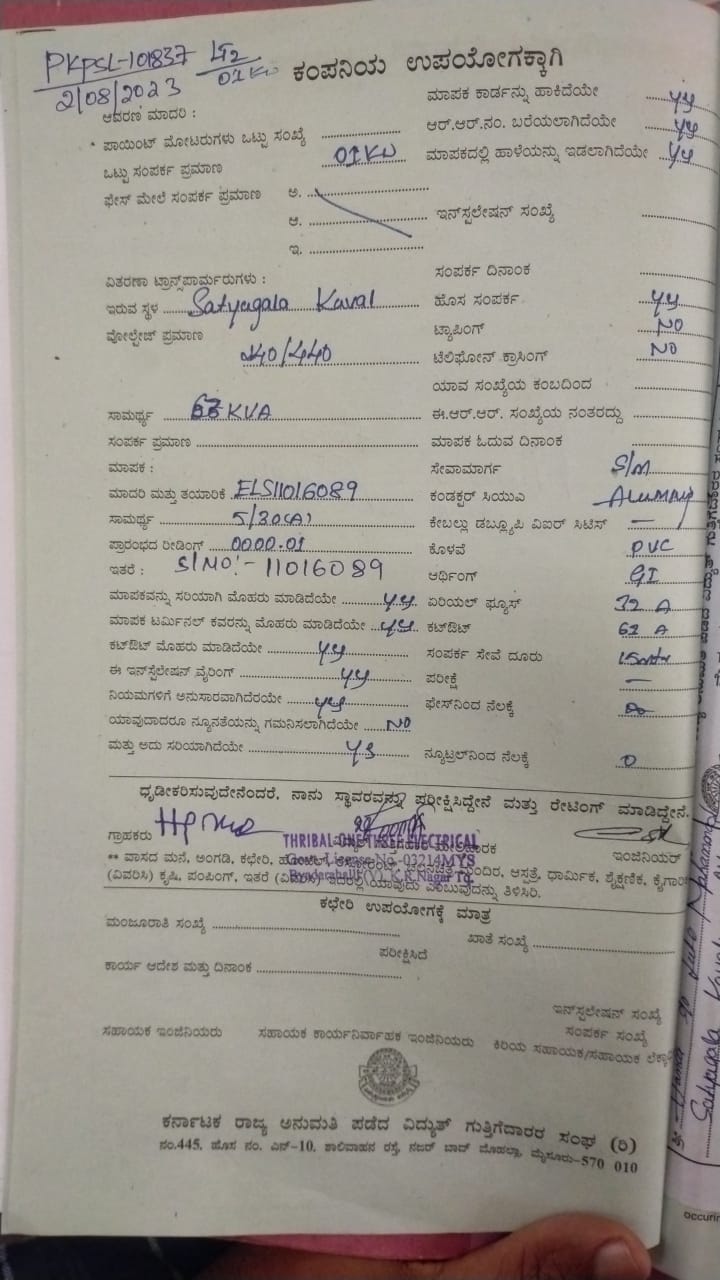 PKPSL-101837 LT2
2/08/2023 01 KW
ಕಂಪನಿಯ ಉಪಯೋಗಕ್ಕಾಗಿ
ಆವರಣ ಮಾದರಿ :
ಮಾಪಕ ಕಾರ್ಡನ್ನು ಹಾಕಿದೆಯೇ yy
* ಪಾಯಿಂಟ್ ಮೋಟರುಗಳು ಒಟ್ಟು ಸಂಖ್ಯೆ
ಆರ್.ಆರ್.ನಂ. ಬರೆಯಲಾಗಿದೆಯೇ yy
ಒಟ್ಟು ಸಂಪರ್ಕ ಪ್ರಮಾಣ 01KW
ಮಾಪಕದಲ್ಲಿ ಹಾಳೆಯನ್ನು ಇಡಲಾಗಿದೆಯೇ yy
ಫೇಸ್ ಮೇಲೆ ಸಂಪರ್ಕ ಪ್ರಮಾಣ ಅ.
ಆ.
ಇನ್‌ಸ್ಟಲೇಷನ್ ಸಂಖ್ಯೆ
ಇ.
ವಿತರಣಾ ಟ್ರಾನ್ಸ್‌ಪಾರ್ಮರುಗಳು :
ಸಂಪರ್ಕ ದಿನಾಂಕ
ಇರುವ ಸ್ಥಳ Satyagala Kaval
ಹೊಸ ಸಂಪರ್ಕ yy
ವೋಲ್ಟೇಜ್ ಪ್ರಮಾಣ 240/440
ಟ್ಯಾಪಿಂಗ್ NO
ಟೆಲಿಫೋನ್ ಕ್ರಾಸಿಂಗ್ NO
ಯಾವ ಸಂಖ್ಯೆಯ ಕಂಬದಿಂದ
ಸಾಮರ್ಥ್ಯ 63 KVA
ಈ.ಆರ್.ಆರ್. ಸಂಖ್ಯೆಯ ನಂತರದ್ದು
ಸಂಪರ್ಕ ಪ್ರಮಾಣ
ಮಾಪಕ ಓದುವ ದಿನಾಂಕ
ಮಾಪಕ :
ಸೇವಾಮಾರ್ಗ S/M
ಮಾದರಿ ಮತ್ತು ತಯಾರಿಕೆ ELS11016089
ಕಂಡಕ್ಟರ್ ಸಿಯುವಿ
ಸಾಮರ್ಥ್ಯ 5/30(A)
ಕೇಬಲ್ಲು ಡಬ್ಲ್ಯೂಪಿ ವಿಐರ್ ಸಿಟಿಸ್ —
ಪ್ರಾರಂಭದ ರೀಡಿಂಗ್ 0000.01
ಕೊಳವೆ PVC
ಇತರೆ : S/NO:- 11016089
ಆರ್ಥಿಂಗ್ GI
ಮಾಪಕವನ್ನು ಸರಿಯಾಗಿ ಮೊಹರು ಮಾಡಿದೆಯೇ yy
ಏರಿಯಲ್ ಫ್ಯೂಸ್ 32 A
ಮಾಪಕ ಟರ್ಮಿನಲ್ ಕವರನ್ನು ಮೊಹರು ಮಾಡಿದೆಯೇ yy
ಕಟ್‌ಔಟ್ 62 A
ಕಟ್‌ಔಟ್ ಮೊಹರು ಮಾಡಿದೆಯೇ yy
ಸಂಪರ್ಕ ಸೇವೆ ದೂರು
ಈ ಇನ್‌ಸ್ಟಲೇಷನ್ ವೈರಿಂಗ್ yy
ಪರೀಕ್ಷೆ —
ನಿಯಮಗಳಿಗೆ ಅನುಸಾರವಾಗಿದೆಯೇ yy
ಫೇಸ್‌ನಿಂದ ನೆಲಕ್ಕೆ
ಯಾವುದಾದರೂ ನ್ಯೂನತೆಯನ್ನು ಗಮನಿಸಲಾಗಿದೆಯೇ NO
ಮತ್ತು ಅದು ಸರಿಯಾಗಿದೆಯೇ ys
ನ್ಯೂಟ್ರಲ್‌ನಿಂದ ನೆಲಕ್ಕೆ 0
ಧೃಡೀಕರಿಸುವುದೇನೆಂದರೆ, ನಾನು ಸ್ಥಾವರವನ್ನು ಪರೀಕ್ಷಿಸಿದ್ದೇನೆ ಮತ್ತು ರೇಟಿಂಗ್ ಮಾಡಿದ್ದೇನೆ.
ಗ್ರಾಹಕರು
THRIBAL ONE THREE ELECTRICAL
ಇಂಜಿನಿಯರ್
Govt. License No.-03214MYS
** ವಾಸದ ಮನೆ, ಅಂಗಡಿ, ಕಛೇರಿ, ಮಂದಿರ, ಆಸ್ಪತ್ರೆ, ಧಾರ್ಮಿಕ, ಶೈಕ್ಷಣಿಕ,
K.R.Nagar Tq.
(ವಿವರಿಸಿ) ಕೃಷಿ, ಪಂಪಿಂಗ್, ಇತರೆ ಇದರಲ್ಲಿ ಯಾವುದು ಎಂಬುವುದನ್ನು ತಿಳಿಸಿರಿ.
ಕಛೇರಿ ಉಪಯೋಗಕ್ಕೆ ಮಾತ್ರ
ಮಂಜೂರಾತಿ ಸಂಖ್ಯೆ
ಖಾತೆ ಸಂಖ್ಯೆ
ಪರೀಕ್ಷಿಸಿದೆ
ಕಾರ್ಯ ಆದೇಶ ಮತ್ತು ದಿನಾಂಕ
ಇನ್‌ಸ್ಟಲೇಷನ್ ಸಂಖ್ಯೆ
ಸಂಪರ್ಕ ಸಂಖ್ಯೆ
ಸಹಾಯಕ ಇಂಜಿನಿಯರು ಸಹಾಯಕ ಕಾರ್ಯನಿರ್ವಾಹಕ ಇಂಜಿನಿಯರು ಕಿರಿಯ ಸಹಾಯಕ/ಸಹಾಯಕ
ಕರ್ನಾಟಕ ರಾಜ್ಯ ಅನುಮತಿ ಪಡೆದ ವಿದ್ಯುತ್ ಗುತ್ತಿಗೆದಾರರ ಸಂಘ (ರಿ)
ನಂ.445, ಹೊಸ ನಂ. ಎನ್-10, ಶಾಲಿವಾಹನ ರಸ್ತೆ, ನಜರ್ ಬಾದ್ ಮೊಹಲ್ಲಾ, ಮೈಸೂರು-570 010
Satyagala